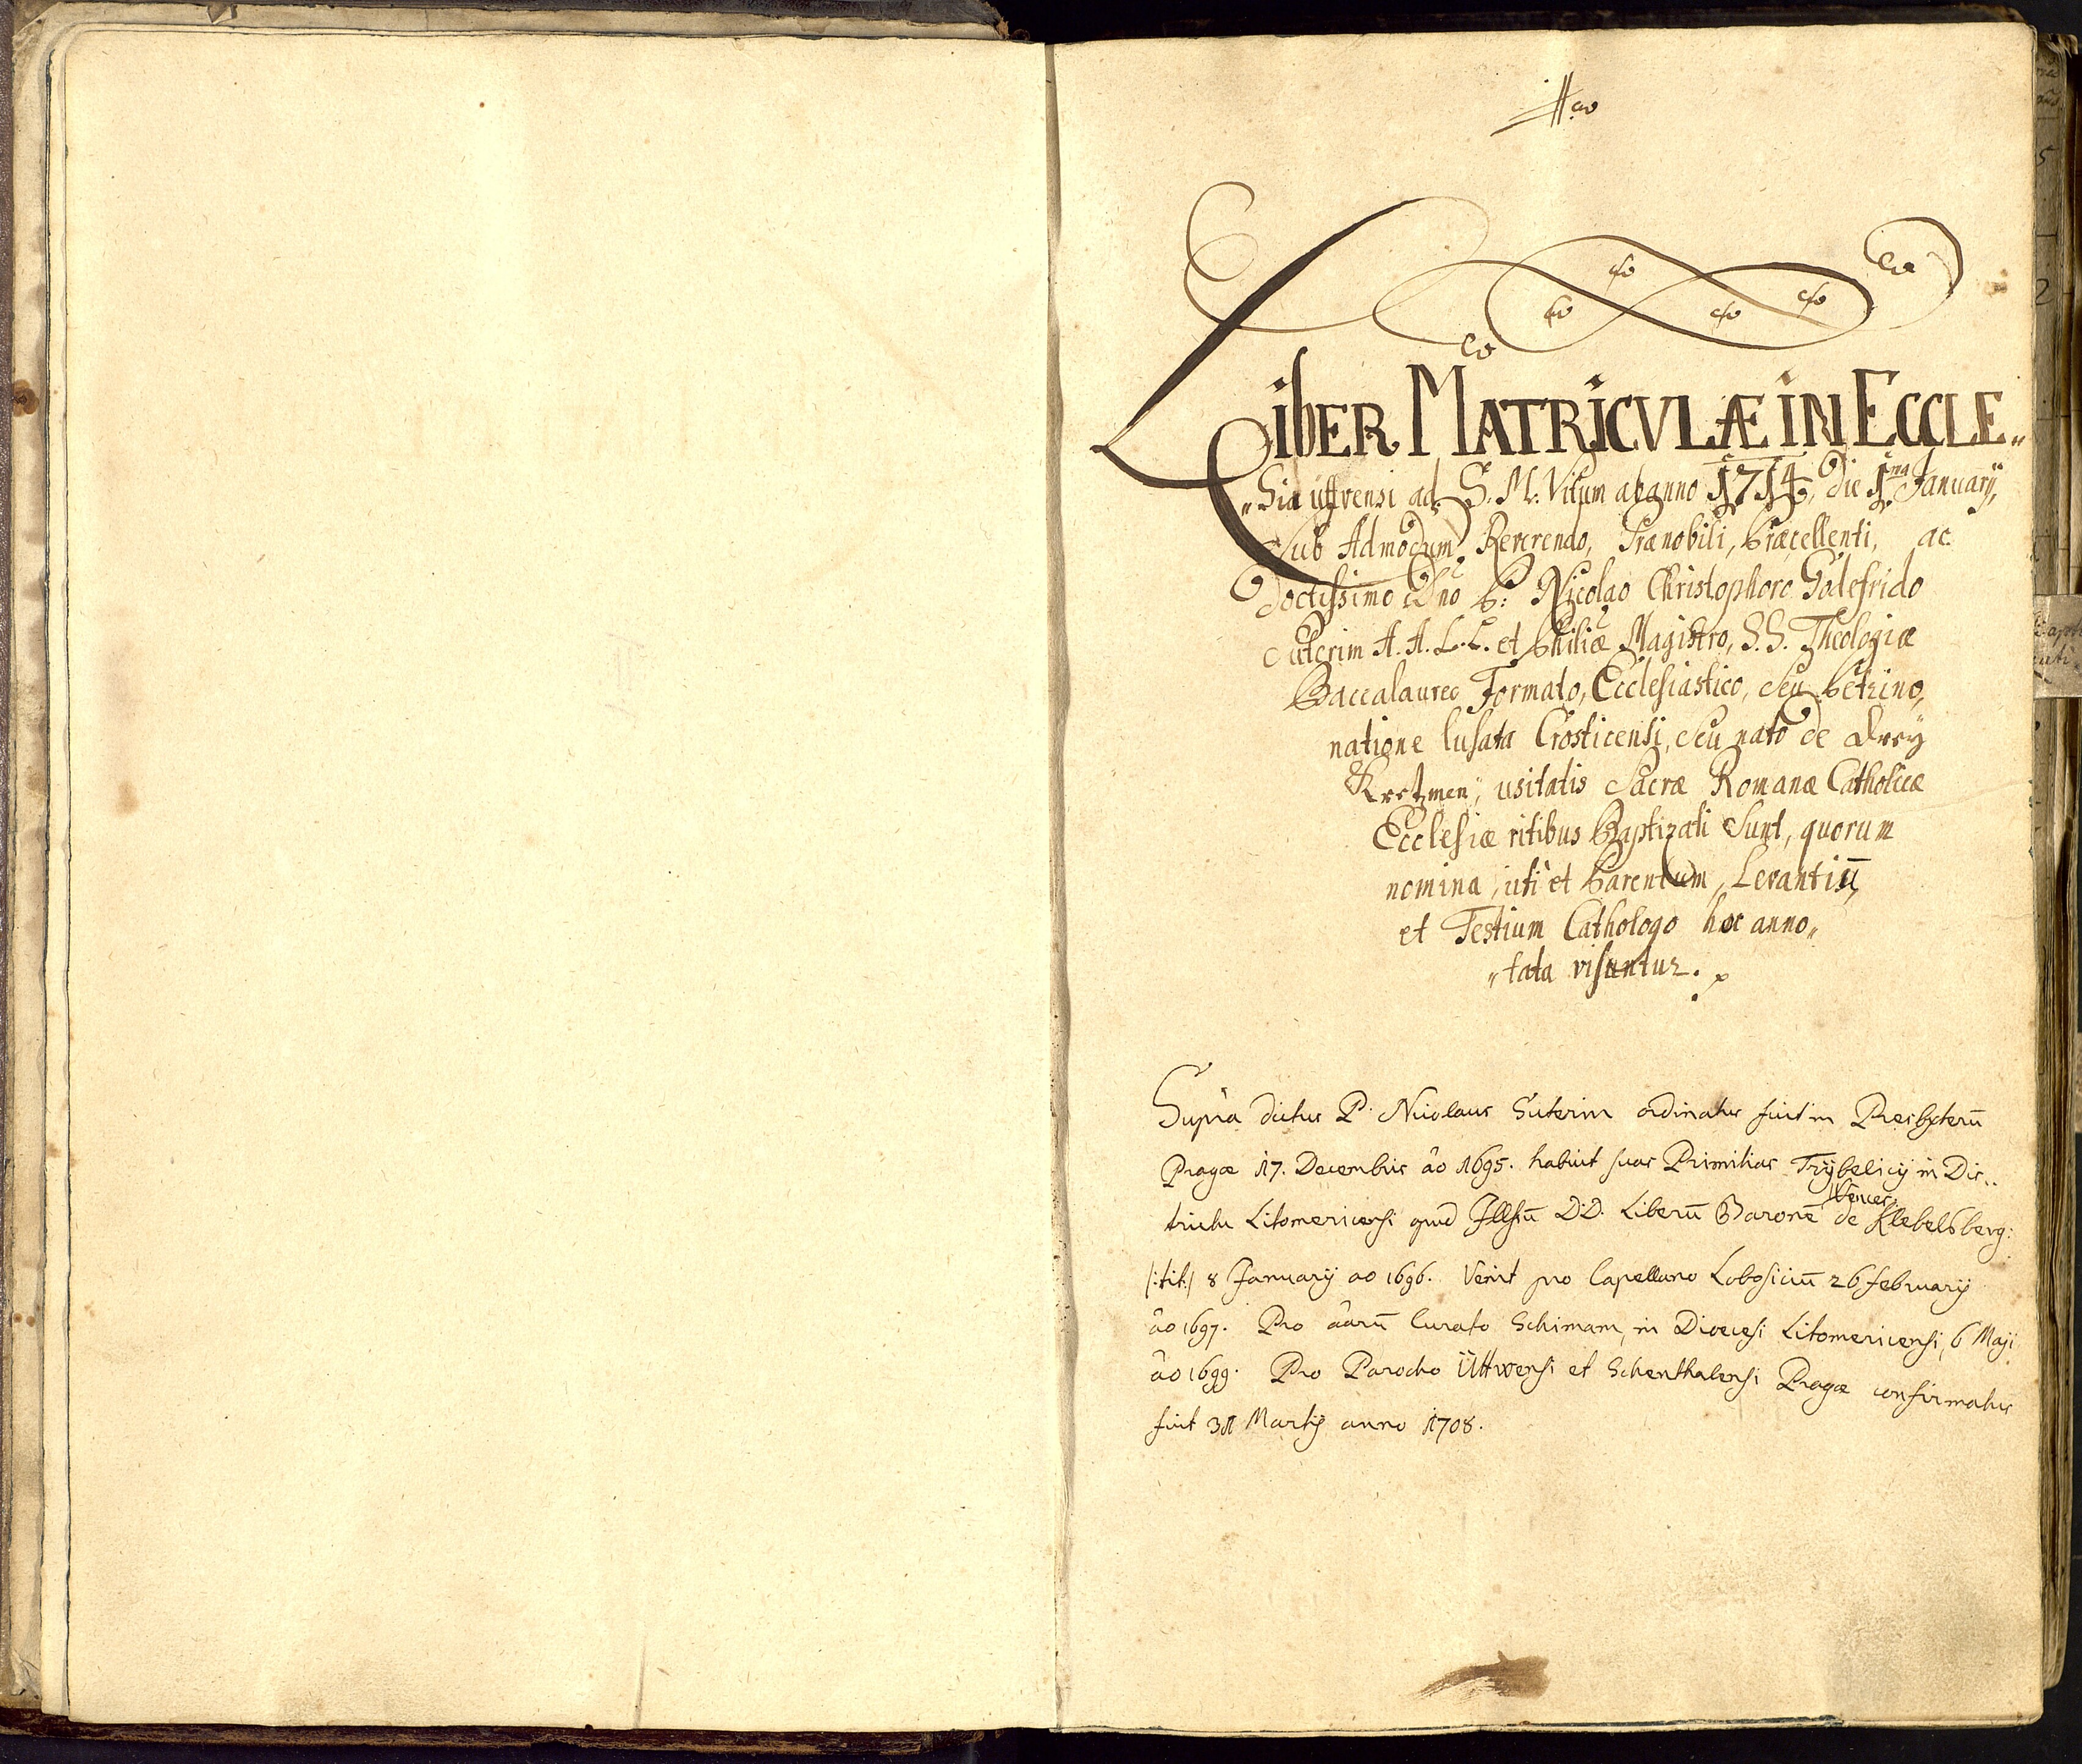 LIBER MATRICVLÆ IN ECCLE„
„sia üttvensi ad S. M. Vitum ab anno 1714, die 1ma Januarij,
sub Admodum Reverendo, Prænobili, Præcellenti, ac
doctissimo Dno P: Nicolao Christophoro Godefrido
Suterim A. A. L. L. et Philiæ Magistro, S. S. Theologiæ
Baccalaureo Formato, Ecclesiastico, seu Petrino,
natione lusata Crosticensi, seu nato de Drey
Kretzmen, usitatis Sacræ Romanæ Catholicæ
Ecclesiæ ritibus Baptizati sunt, quorum
nomina, uti et Parentum, Levantiū,
et Testium Cathologo hoc anno„
„tata visuntur.
Supra dictus P. Nicolaus Suterim ordinatus fuit in Presbyterū
Pragæ 17. Decembris ao 1695. habuit suas Primitias Trÿbelicij in Dis„
trictu Litomericensi apud Illsīū D.D. Liberū Baronē Wences: de Klebelsberg:
/:tit:/ 8 Januarij ao 1696. Venit pro Capellano Lobosiciū 26 februarij
ao 1697. Pro Curato Schimam, in Dioecesi Litomericensi, 6 Maji
ao 1699. Pro Parocho Üttwensi et Schenthalensi Pragæ confirmatus
fuit 31 Martij anno 1708.